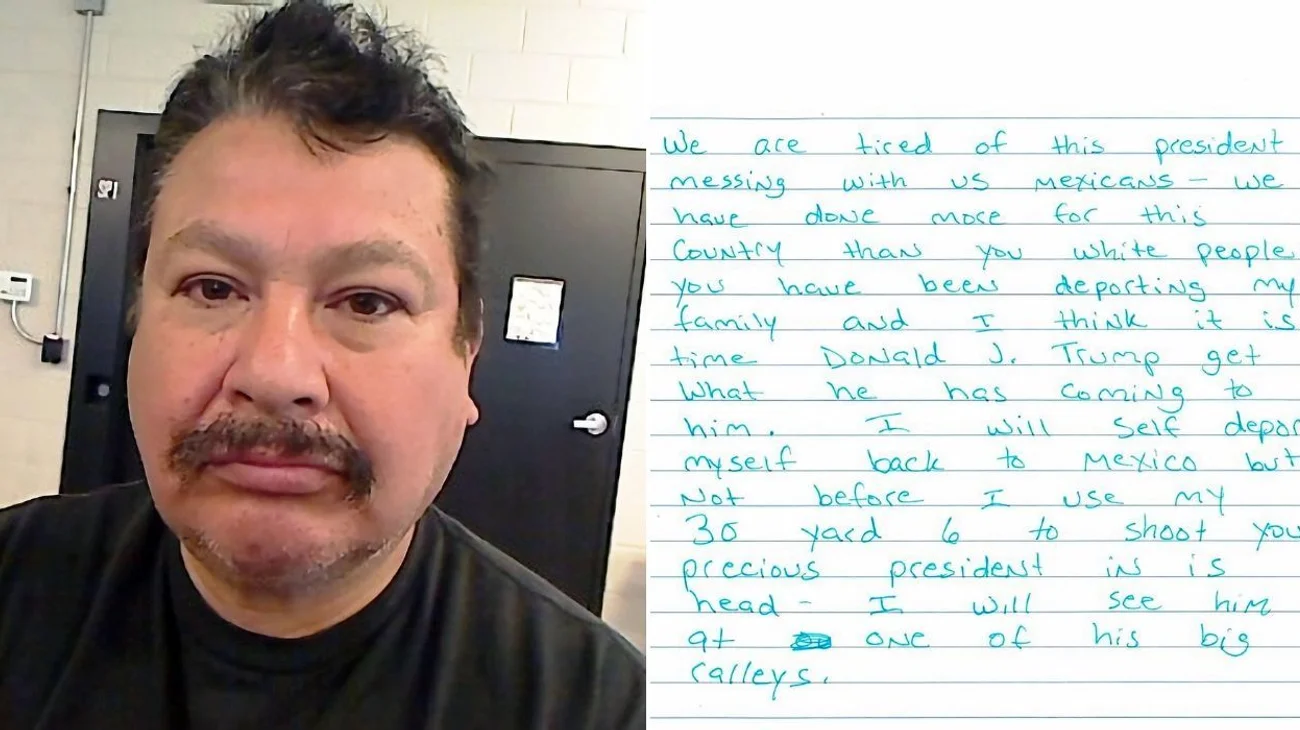 SP1
We are tired of this president
messing with us Mexicans - we
have done more for this
Country than you white people
you have been deporting my
family and I think it is
time Donald J. Trump get
what he has coming to
him. I will self depor
myself back to Mexico but
not before I use my
30 yard 6 to shoot you
precious president in is
head - I will see him
at one of his big
ralleys.